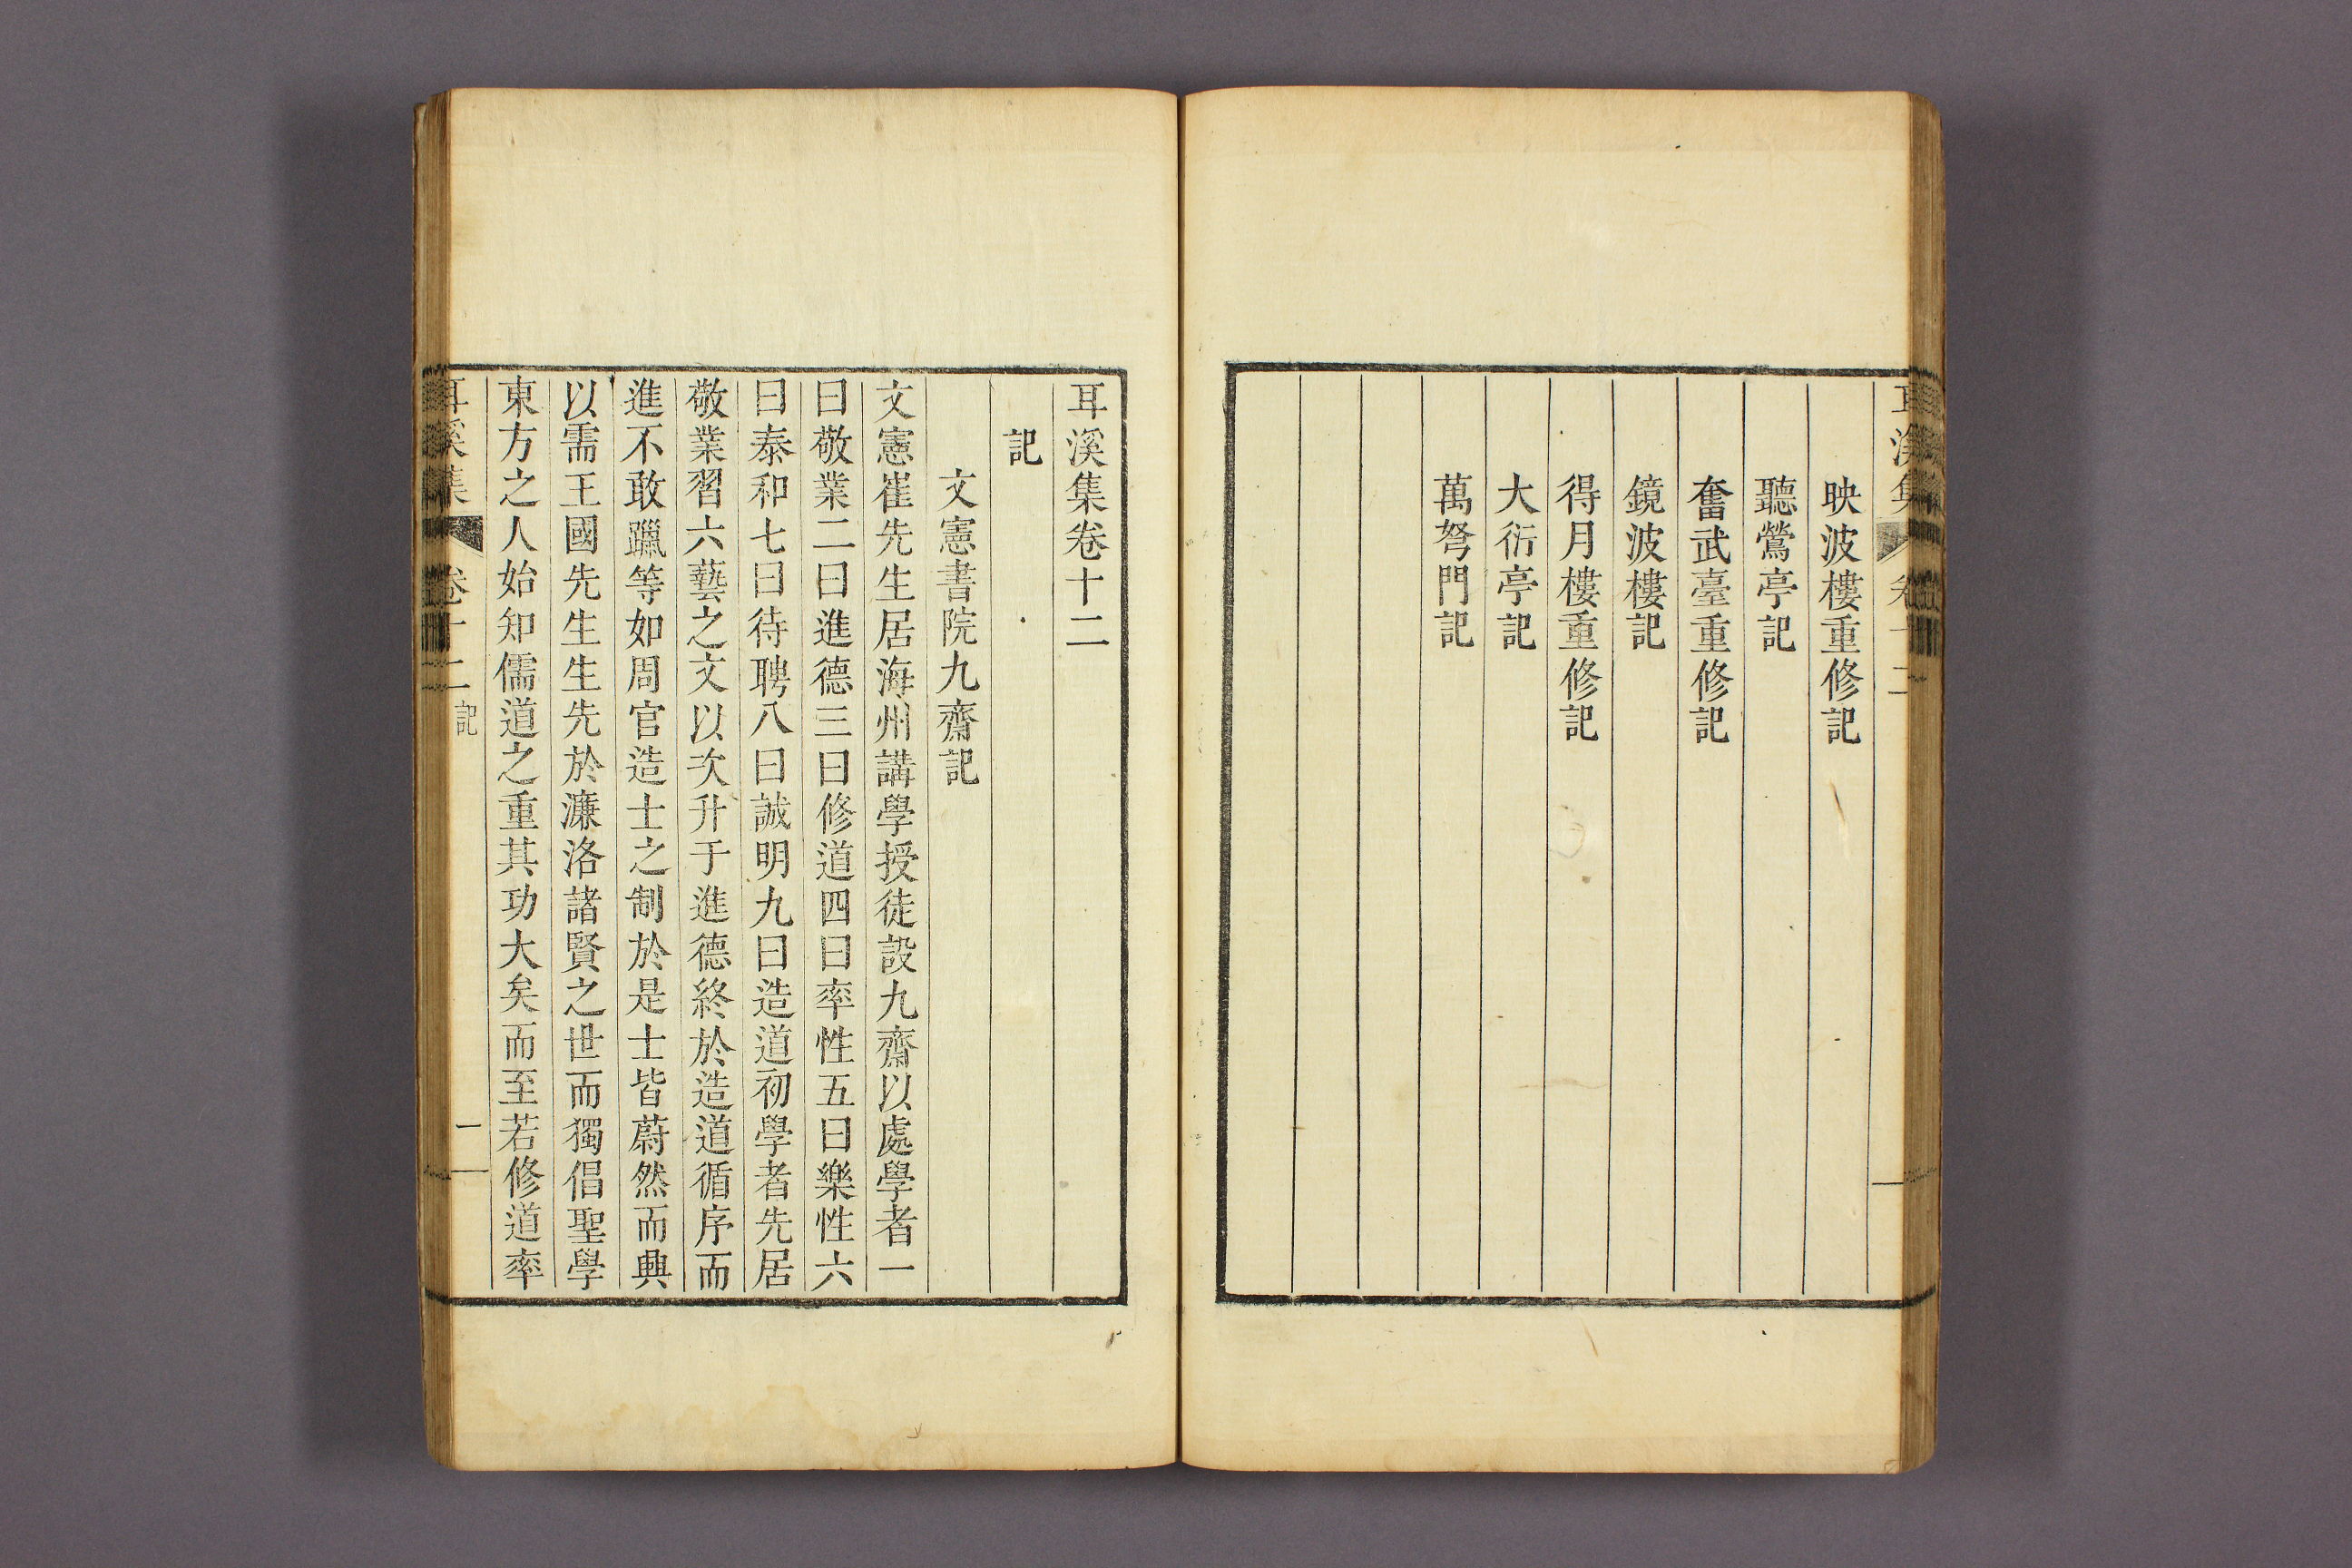 映波樓重修記
聽鶯亭記
奮武臺重修記
鏡波樓記
得月樓重修記
大衍亭記
萬弩門記
耳溪集卷十二
記
文憲書院九齋記
文憲崔先生居海州講學授徒設九齋以處學者一
曰敬業二曰進德三曰修道四曰率性五曰樂性六
曰泰和七曰待聘八曰誠明九曰造道初學者先居
敬業習六藝之文以次升于進德終於造道循序而
進不敢躐等如周官造士之制於是士皆蔚然而興
以需王國先生生先於濂洛諸賢之世而獨倡聖學
東方之人始知儒道之重其功大矣而至若修道率
耳溪集 卷十二 記 一